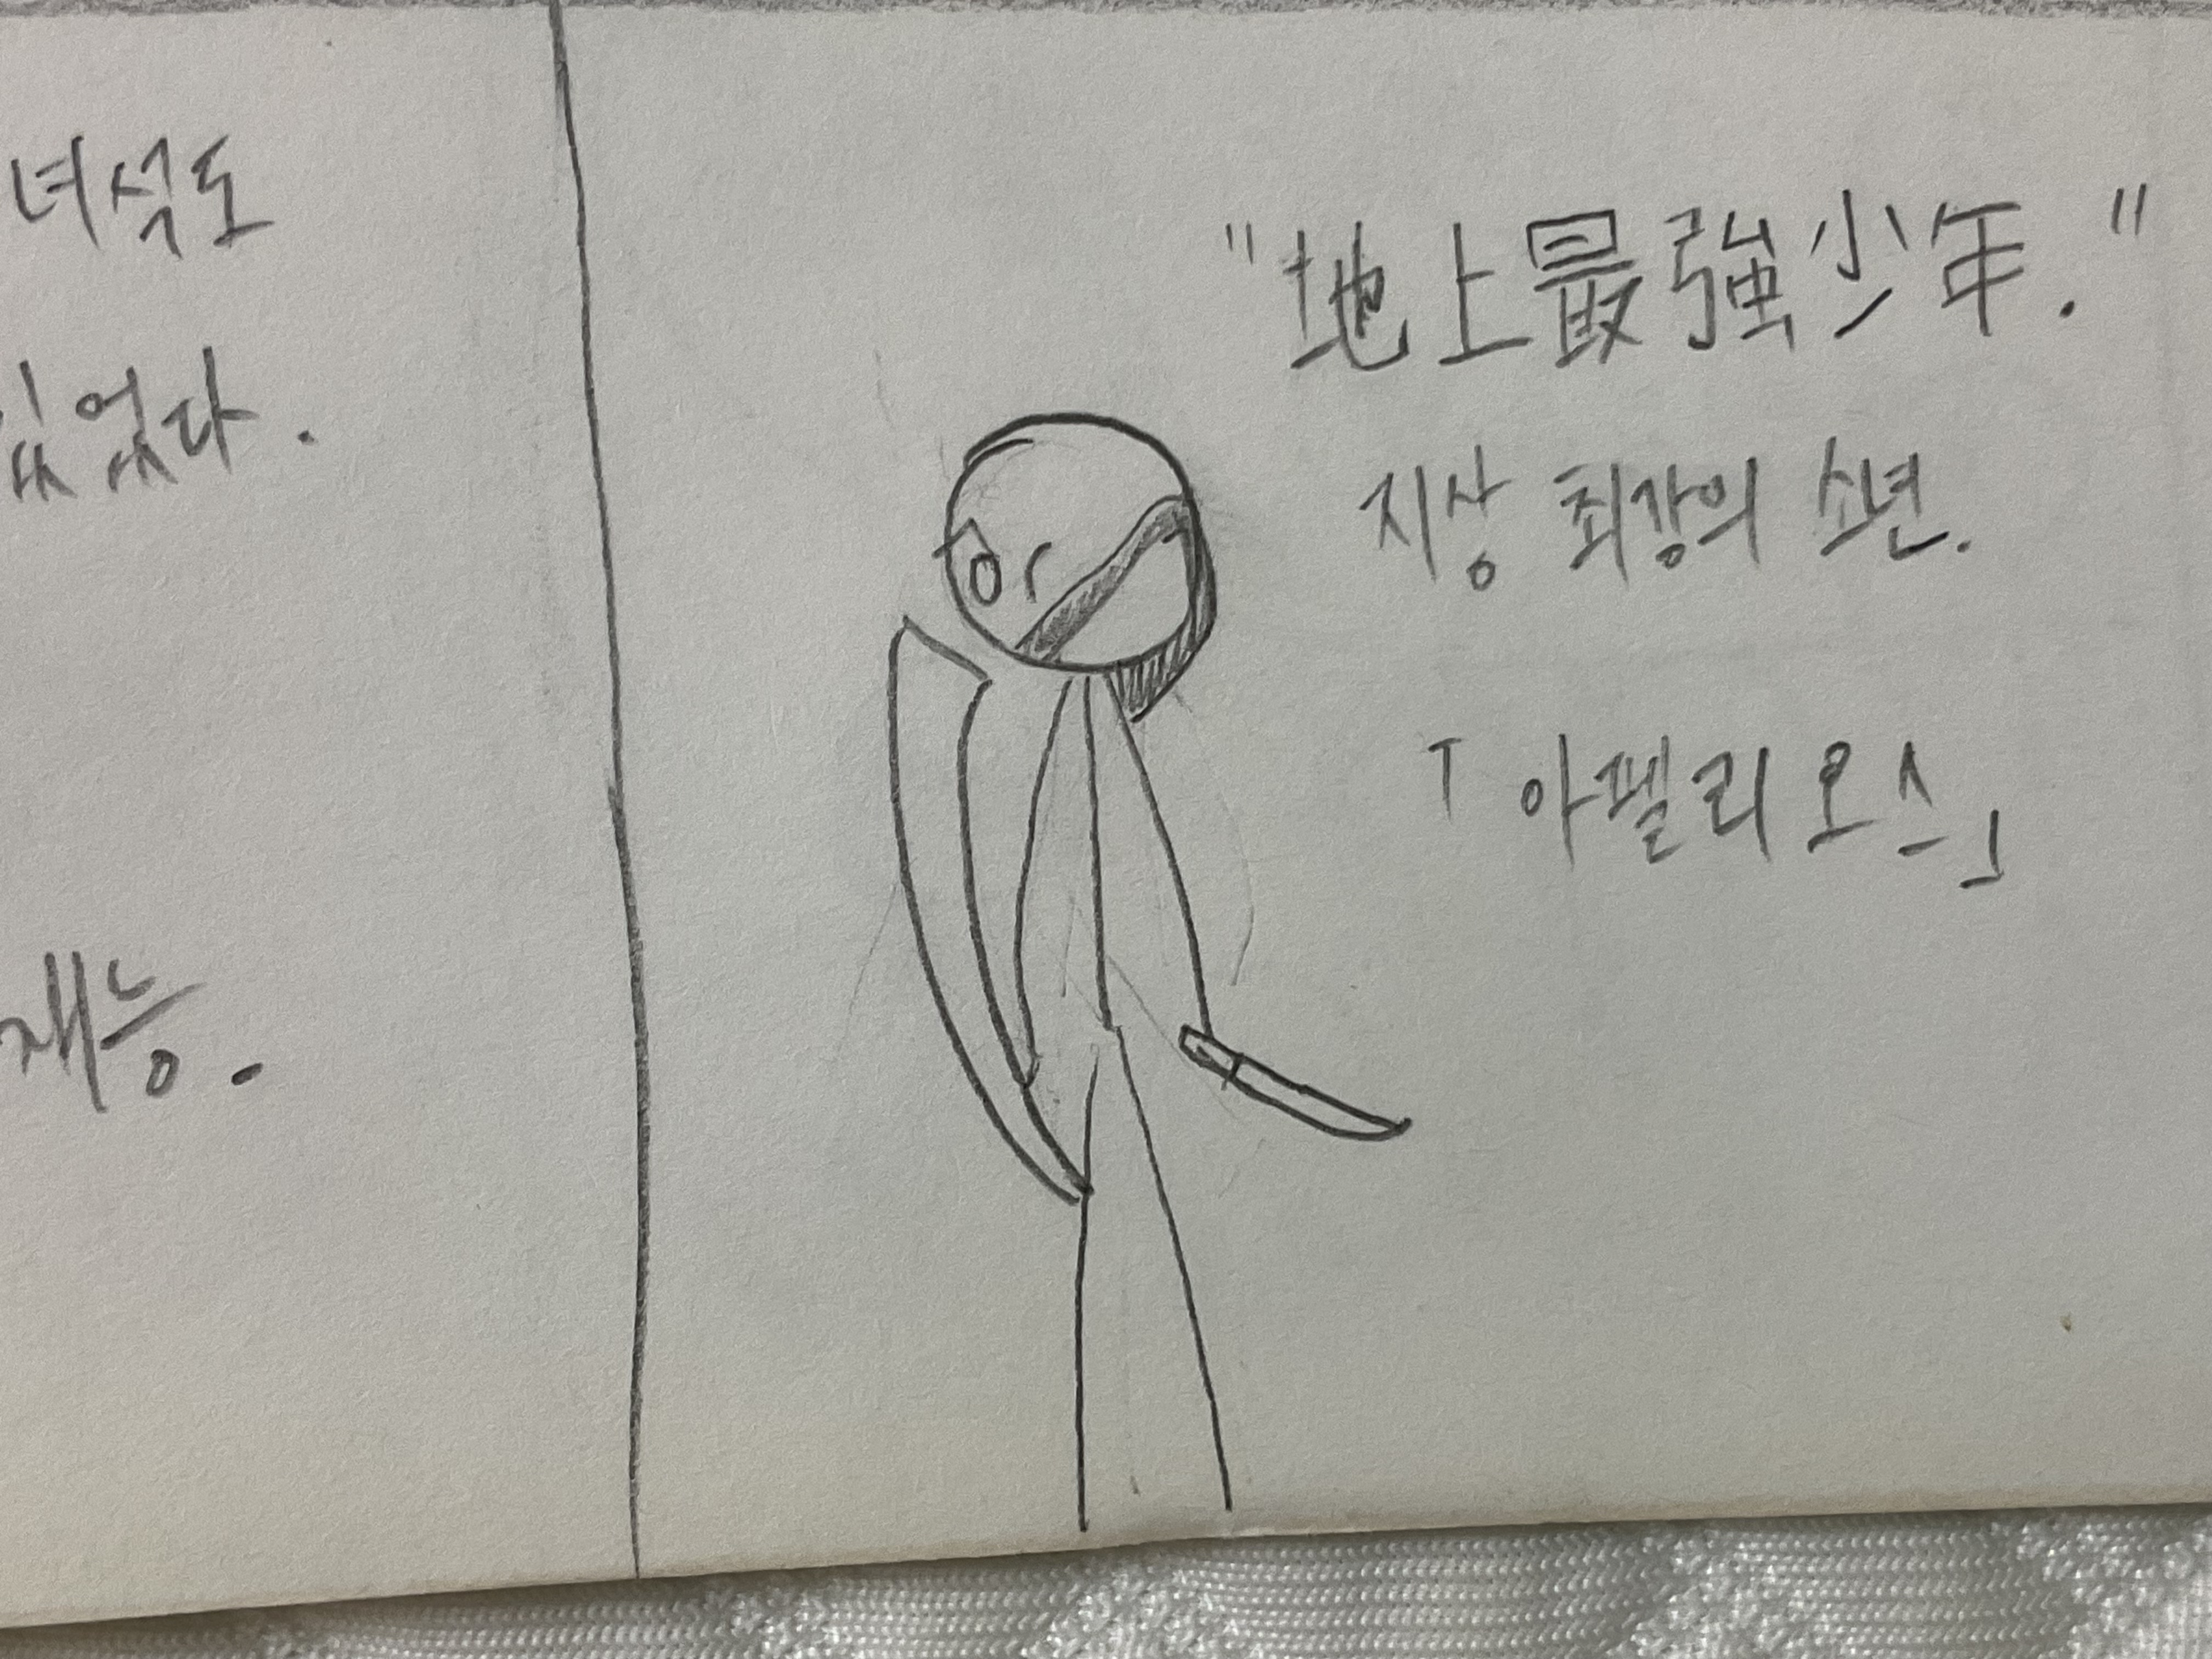 녀석도
있었다.
재능.
"地上最強少年."
지상 최강의 소년.
「아펠리오스」